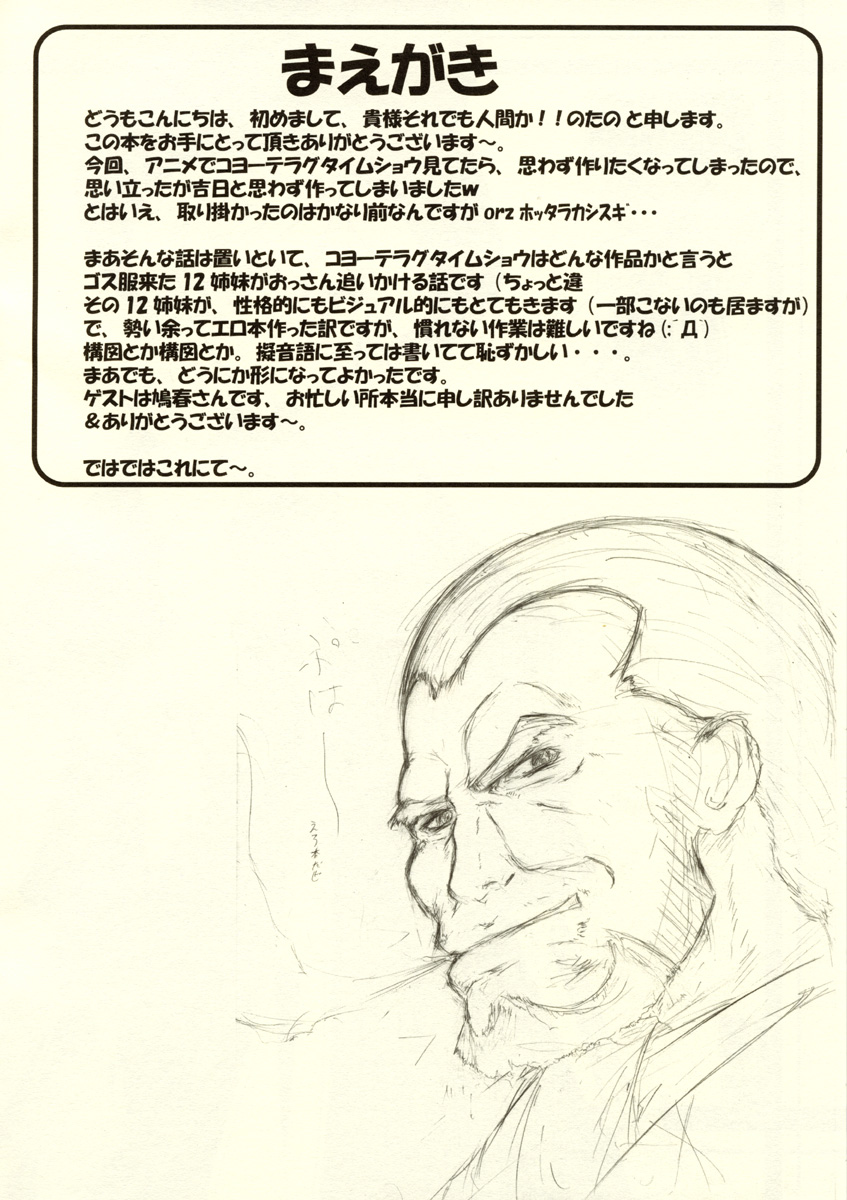 まえがき
どうもこんにちは、初めまして、貴様それでも人間か！！のたのと申します。
この本をお手にとって頂きありがとうございます～。
今回、アニメでコヨーテラグタイムショウ見てたら、思わず作りたくなってしまったので、
思い立ったが吉日と思わず作ってしまいましたw
とはいえ、取り掛かったのはかなり前なんですが orz ﾎｯﾀﾗｶｼｽｷﾞ･･･
まあそんな話は置いといて、コヨーテラグタイムショウはどんな作品かと言うと
ゴス服来た 12 姉妹がおっさん追いかける話です（ちょっと違
その 12 姉妹が、性格的にもビジュアル的にもとてもきます（一部こないのも居ますが）
で、勢い余ってエロ本作った訳ですが、慣れない作業は難しいですね (;´Д`)
構図とか構図とか。擬音語に至っては書いてて恥ずかしい・・・。
まあでも、どうにか形になってよかったです。
ゲストは鳩春さんです、お忙しい所本当に申し訳ありませんでした
＆ありがとうございます～。
ではではこれにて～。
ぷはー